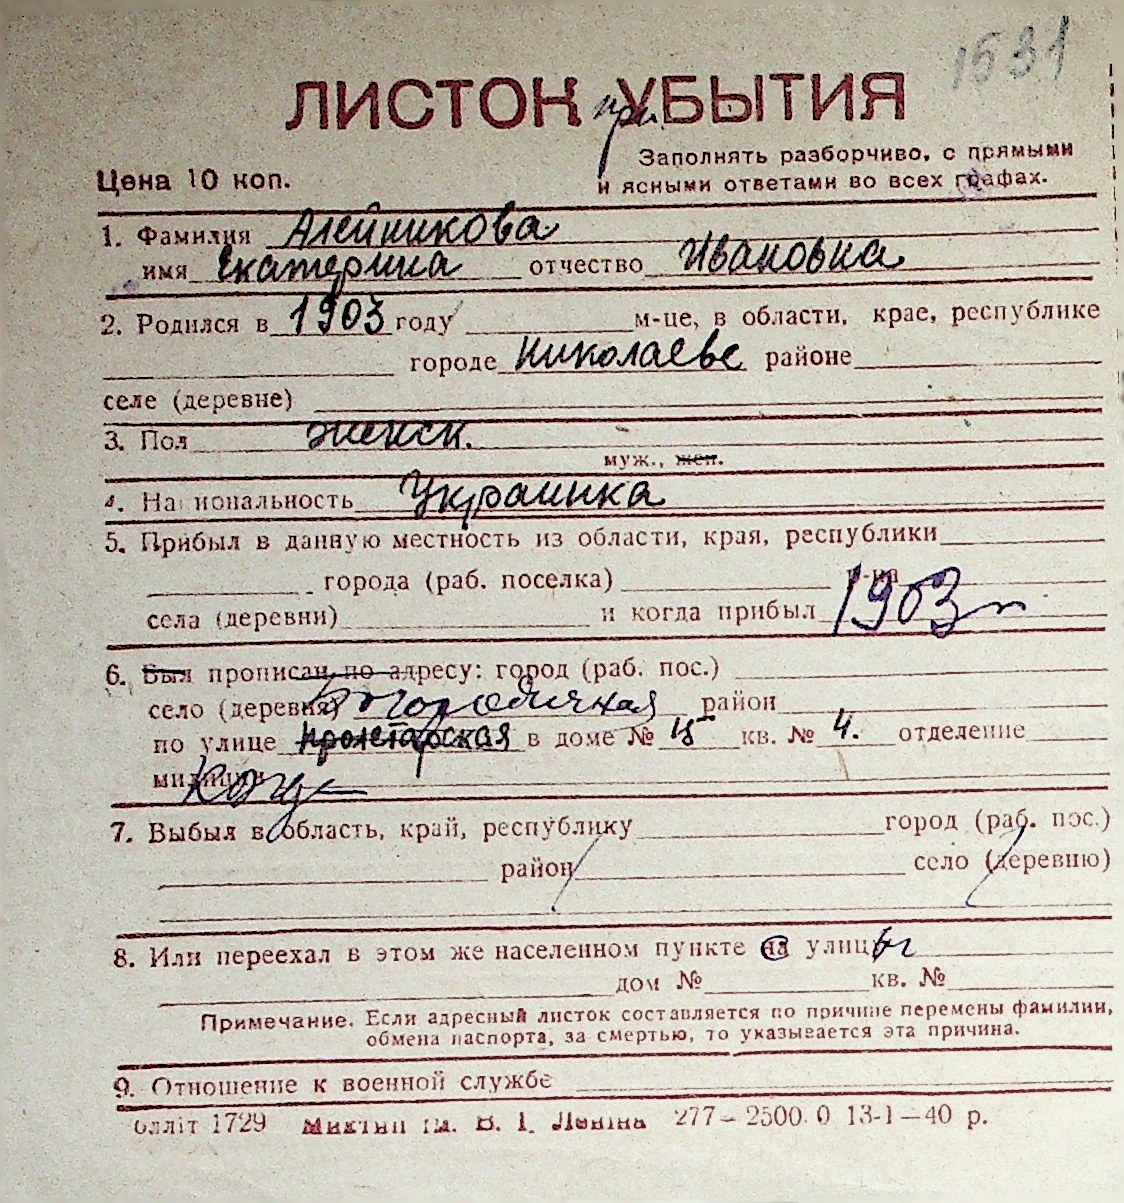 1531
ЛИСТОК при УБЫТИЯ
Заполнять разборчиво, с прямыми
Цена 10 коп. и ясными ответами во всех графах.
1. Фамилия Алейникова
имя Екатерина отчество Ивановна
2. Родился в 1903 году м-це, в области, крае, республике
городе Николаеве районе
селе (деревне)
3. Пол женск.
муж., жен.
4. Национальность Украинка
5. Прибыл в данную местность из области, края, республики
города (раб. поселка) р-на
села (деревни) и когда прибыл 1903 г
6. Был прописан по адресу: город (раб. пос.)
село (деревня) район
по улице пролетарская в доме № 15 кв. № 4. отделение
милиции
7. Выбыл в область, край, республику город (раб. пос.)
район село (деревню)
8. Или переехал в этом же населенном пункте на улицы
дом № кв. №
Примечание. Если адресный листок составляется по причине перемены фамилии,
обмена паспорта, за смертью, то указывается эта причина.
9. Отношение к военной службе
блліт 1729 В. І. Леніна 277—2500.0 13-1—40 р.